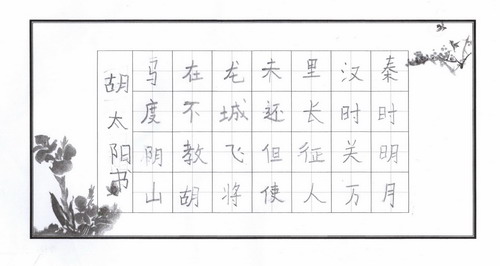 秦时明月
汉时关万
里长征人
未还但使
龙城飞将
在不教胡
马度阴山
胡太阳书